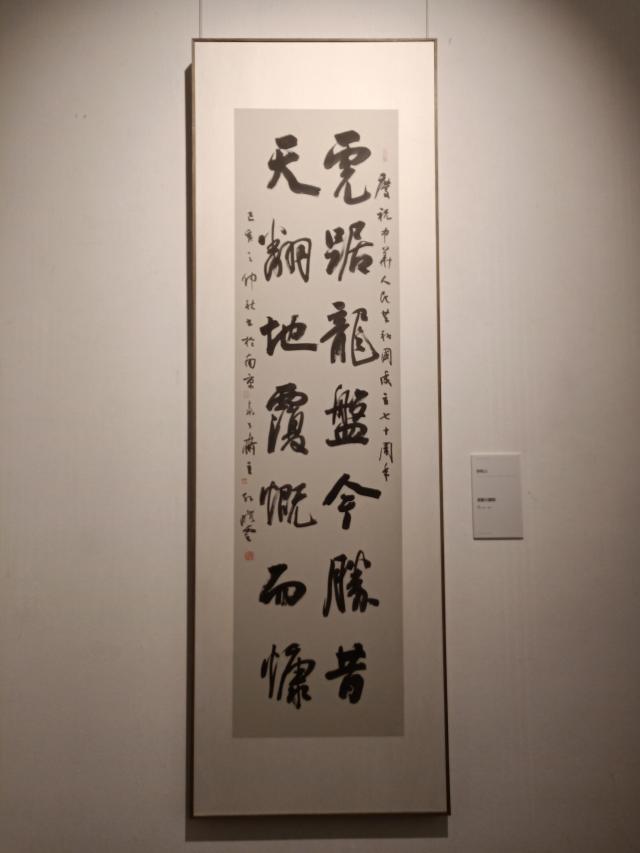 慶祝中華人民共和國成立七十周年
虎踞龍盤今勝昔
天翻地覆慨而慷
己亥之仲秋書於南京